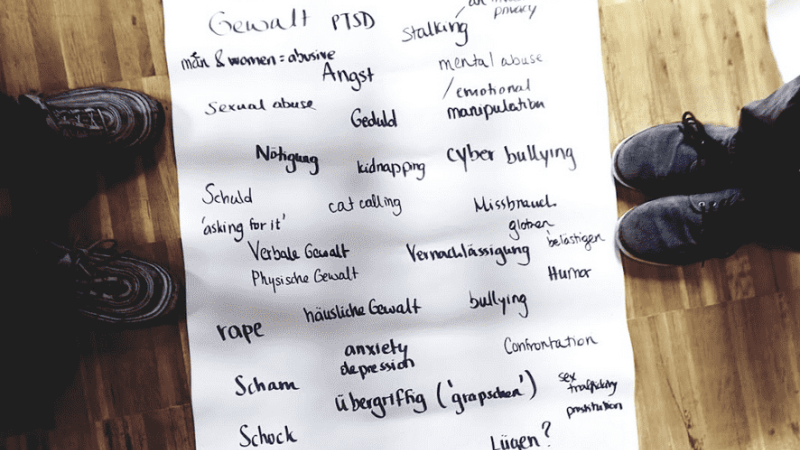 Gewalt PTSD
privacy
Stalking
män & women = abusive
Angst
mental abuse
/ emotional
manipulation
Sexual abuse
Geduld
Nötigung
kidnapping
cyber bullying
Schuld
cat calling
Missbrauch
'asking for it'
glotzen
belästigen
Verbale Gewalt
Vernachlässigung
Physische Gewalt
Humor
häusliche Gewalt
bullying
rape
anxiety
depression
Confrontation
Scham
übergriffig ('grapschen')
sex
trafficking
prostitution
Schock
Lügen?